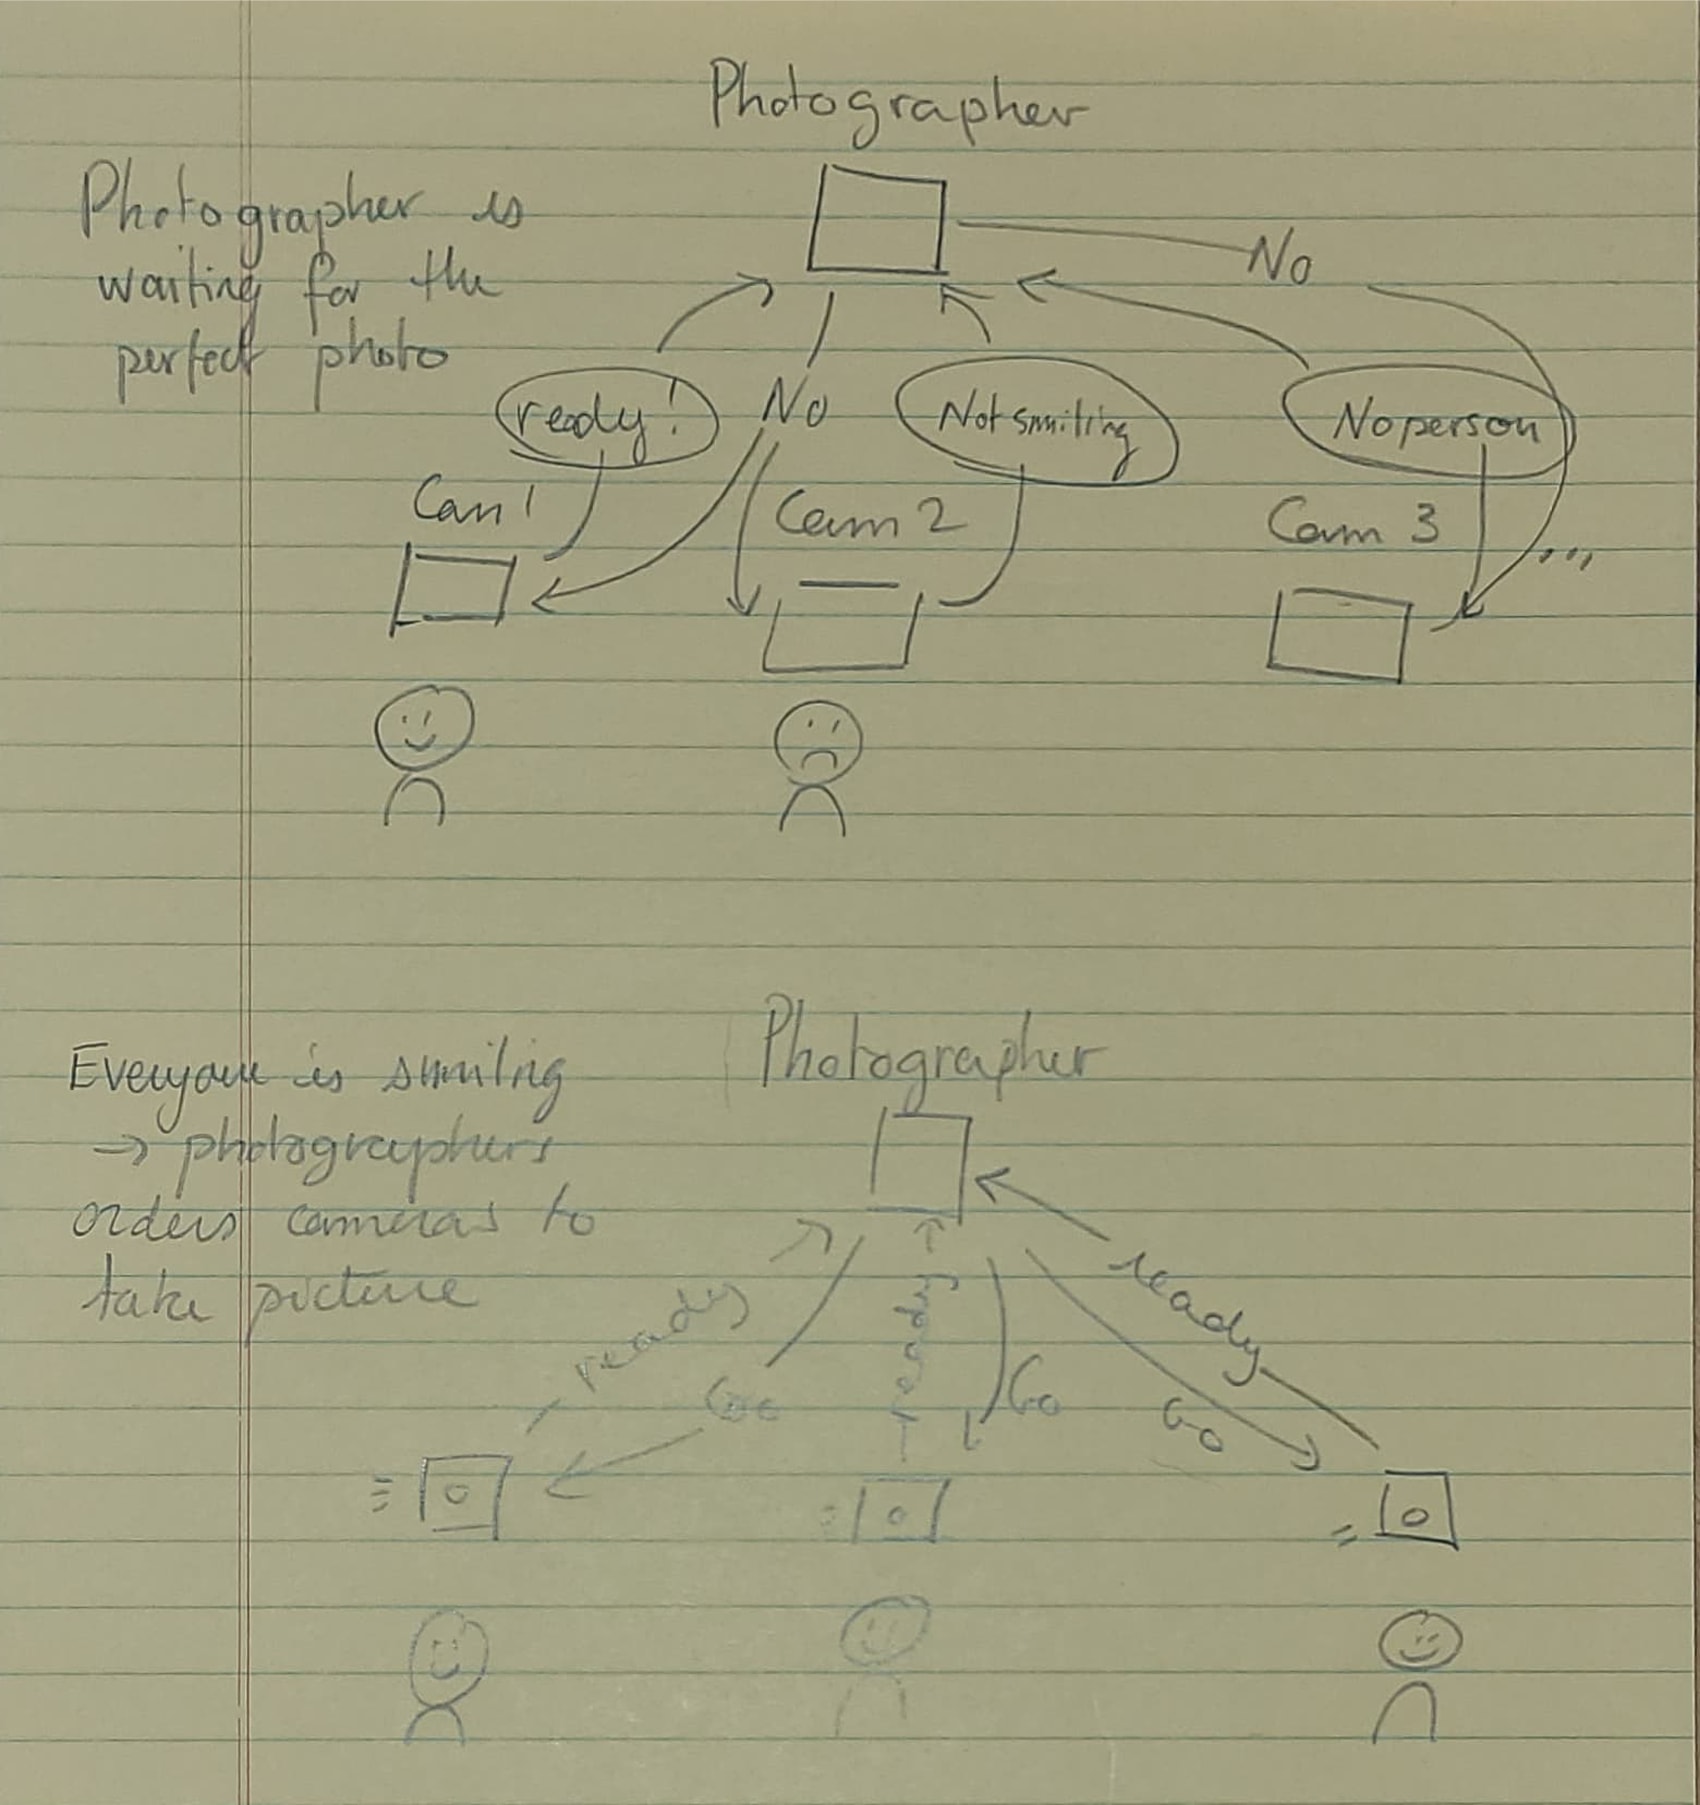 Photographer
Photographer is
waiting for the
perfect photo
No
ready!
No
Not smiling
No person
Cam 1
Cam 2
Cam 3
...
Photographer
Everyone is smiling
→ photographers
orders cameras to
take picture
ready
Go
ready
Go
ready
Go